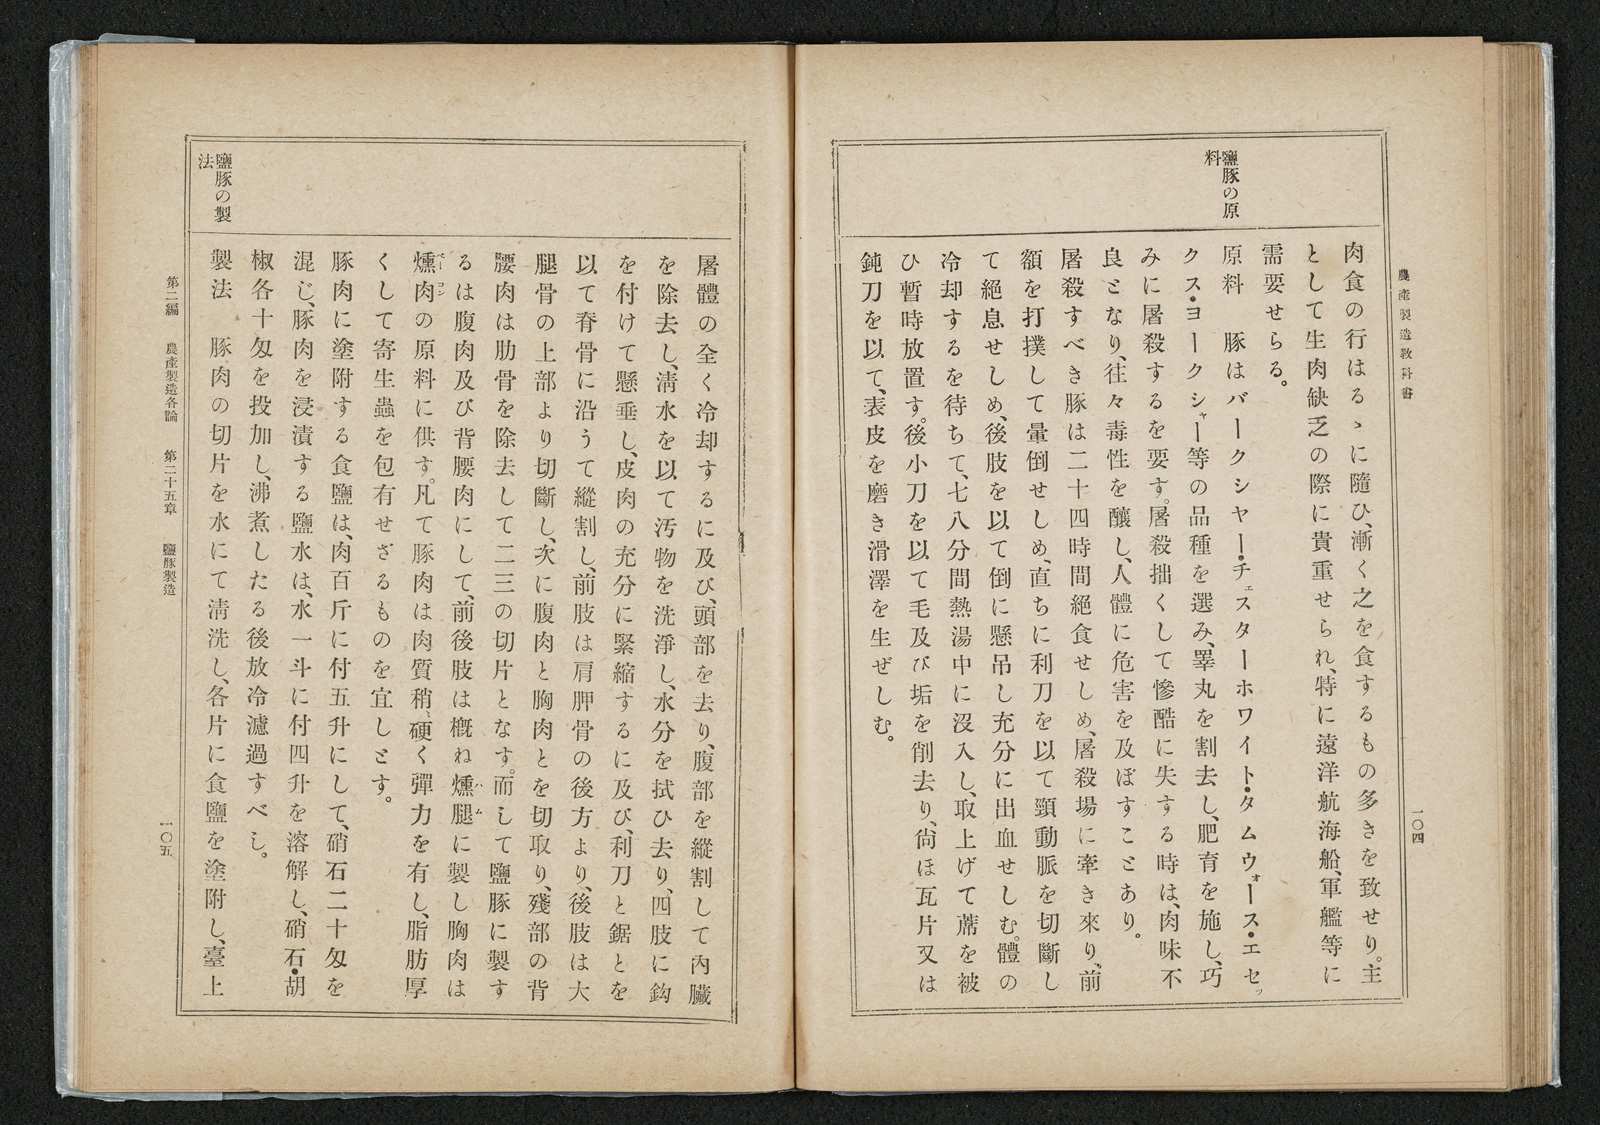 農產製造教科書
一〇四
鹽豚の原
料
肉食の行はるゝに隨ひ、漸く之を食するもの多きを致せり。主
として生肉缺乏の際に貴重せられ、特に遠洋航海船、軍艦等に
需要せらる。
原料　豚はバークシヤー・チェスターホワイト・タムウォース・エセッ
クス・ヨークシャー等の品種を選み、睪丸を割去し、肥育を施し、巧
みに屠殺するを要す。屠殺拙くして慘酷に失する時は、肉味不
良となり、往々毒性を釀し、人體に危害を及ぼすことあり。
屠殺すべき豚は二十四時間絶食せしめ、屠殺場に牽き來り、前
額を打撲して暈倒せしめ、直ちに利刀を以て頸動脈を切斷し
て絶息せしめ、後肢を以て倒に懸吊し充分に出血せしむ。體の
冷却するを待ちて、七八分間熱湯中に沒入し、取上げて蓆を被
ひ暫時放置す。後小刀を以て毛及び垢を削去り、尙ほ瓦片又は
鈍刀を以て、表皮を磨き滑澤を生ぜしむ。
屠體の全く冷却するに及び、頭部を去り、腹部を縱割して內臟
を除去し、淸水を以て汚物を洗淨し、水分を拭ひ去り、四肢に鈎
を付けて懸垂し、皮肉の充分に緊縮するに及び、利刀と鋸とを
以て脊骨に沿うて縱割し、前肢は肩胛骨の後方より、後肢は大
腿骨の上部より切斷し、次に腹肉と胸肉とを切取り、殘部の背
腰肉は肋骨を除去して二三の切片となす。而して鹽豚に製す
るは腹肉及び背腰肉にして、前後肢は槪ね燻腿ハムに製し胸肉は
燻肉ベーコンの原料に供す。凡て豚肉は肉質稍〻硬く彈力を有し、脂肪厚
くして寄生蟲を包有せざるものを宜しとす。
豚肉に塗附する食鹽は、肉百斤に付五升にして、硝石二十匁を
混じ、豚肉を浸漬する鹽水は、水一斗に付四升を溶解し、硝石・胡
椒各十匁を投加し、沸煮したる後放冷濾過すべし。
鹽豚の製
法
製法　豚肉の切片を水にて淸洗し、各片に食鹽を塗附し、臺上
第二編　農產製造各論　第二十五章　鹽豚製造
一〇五